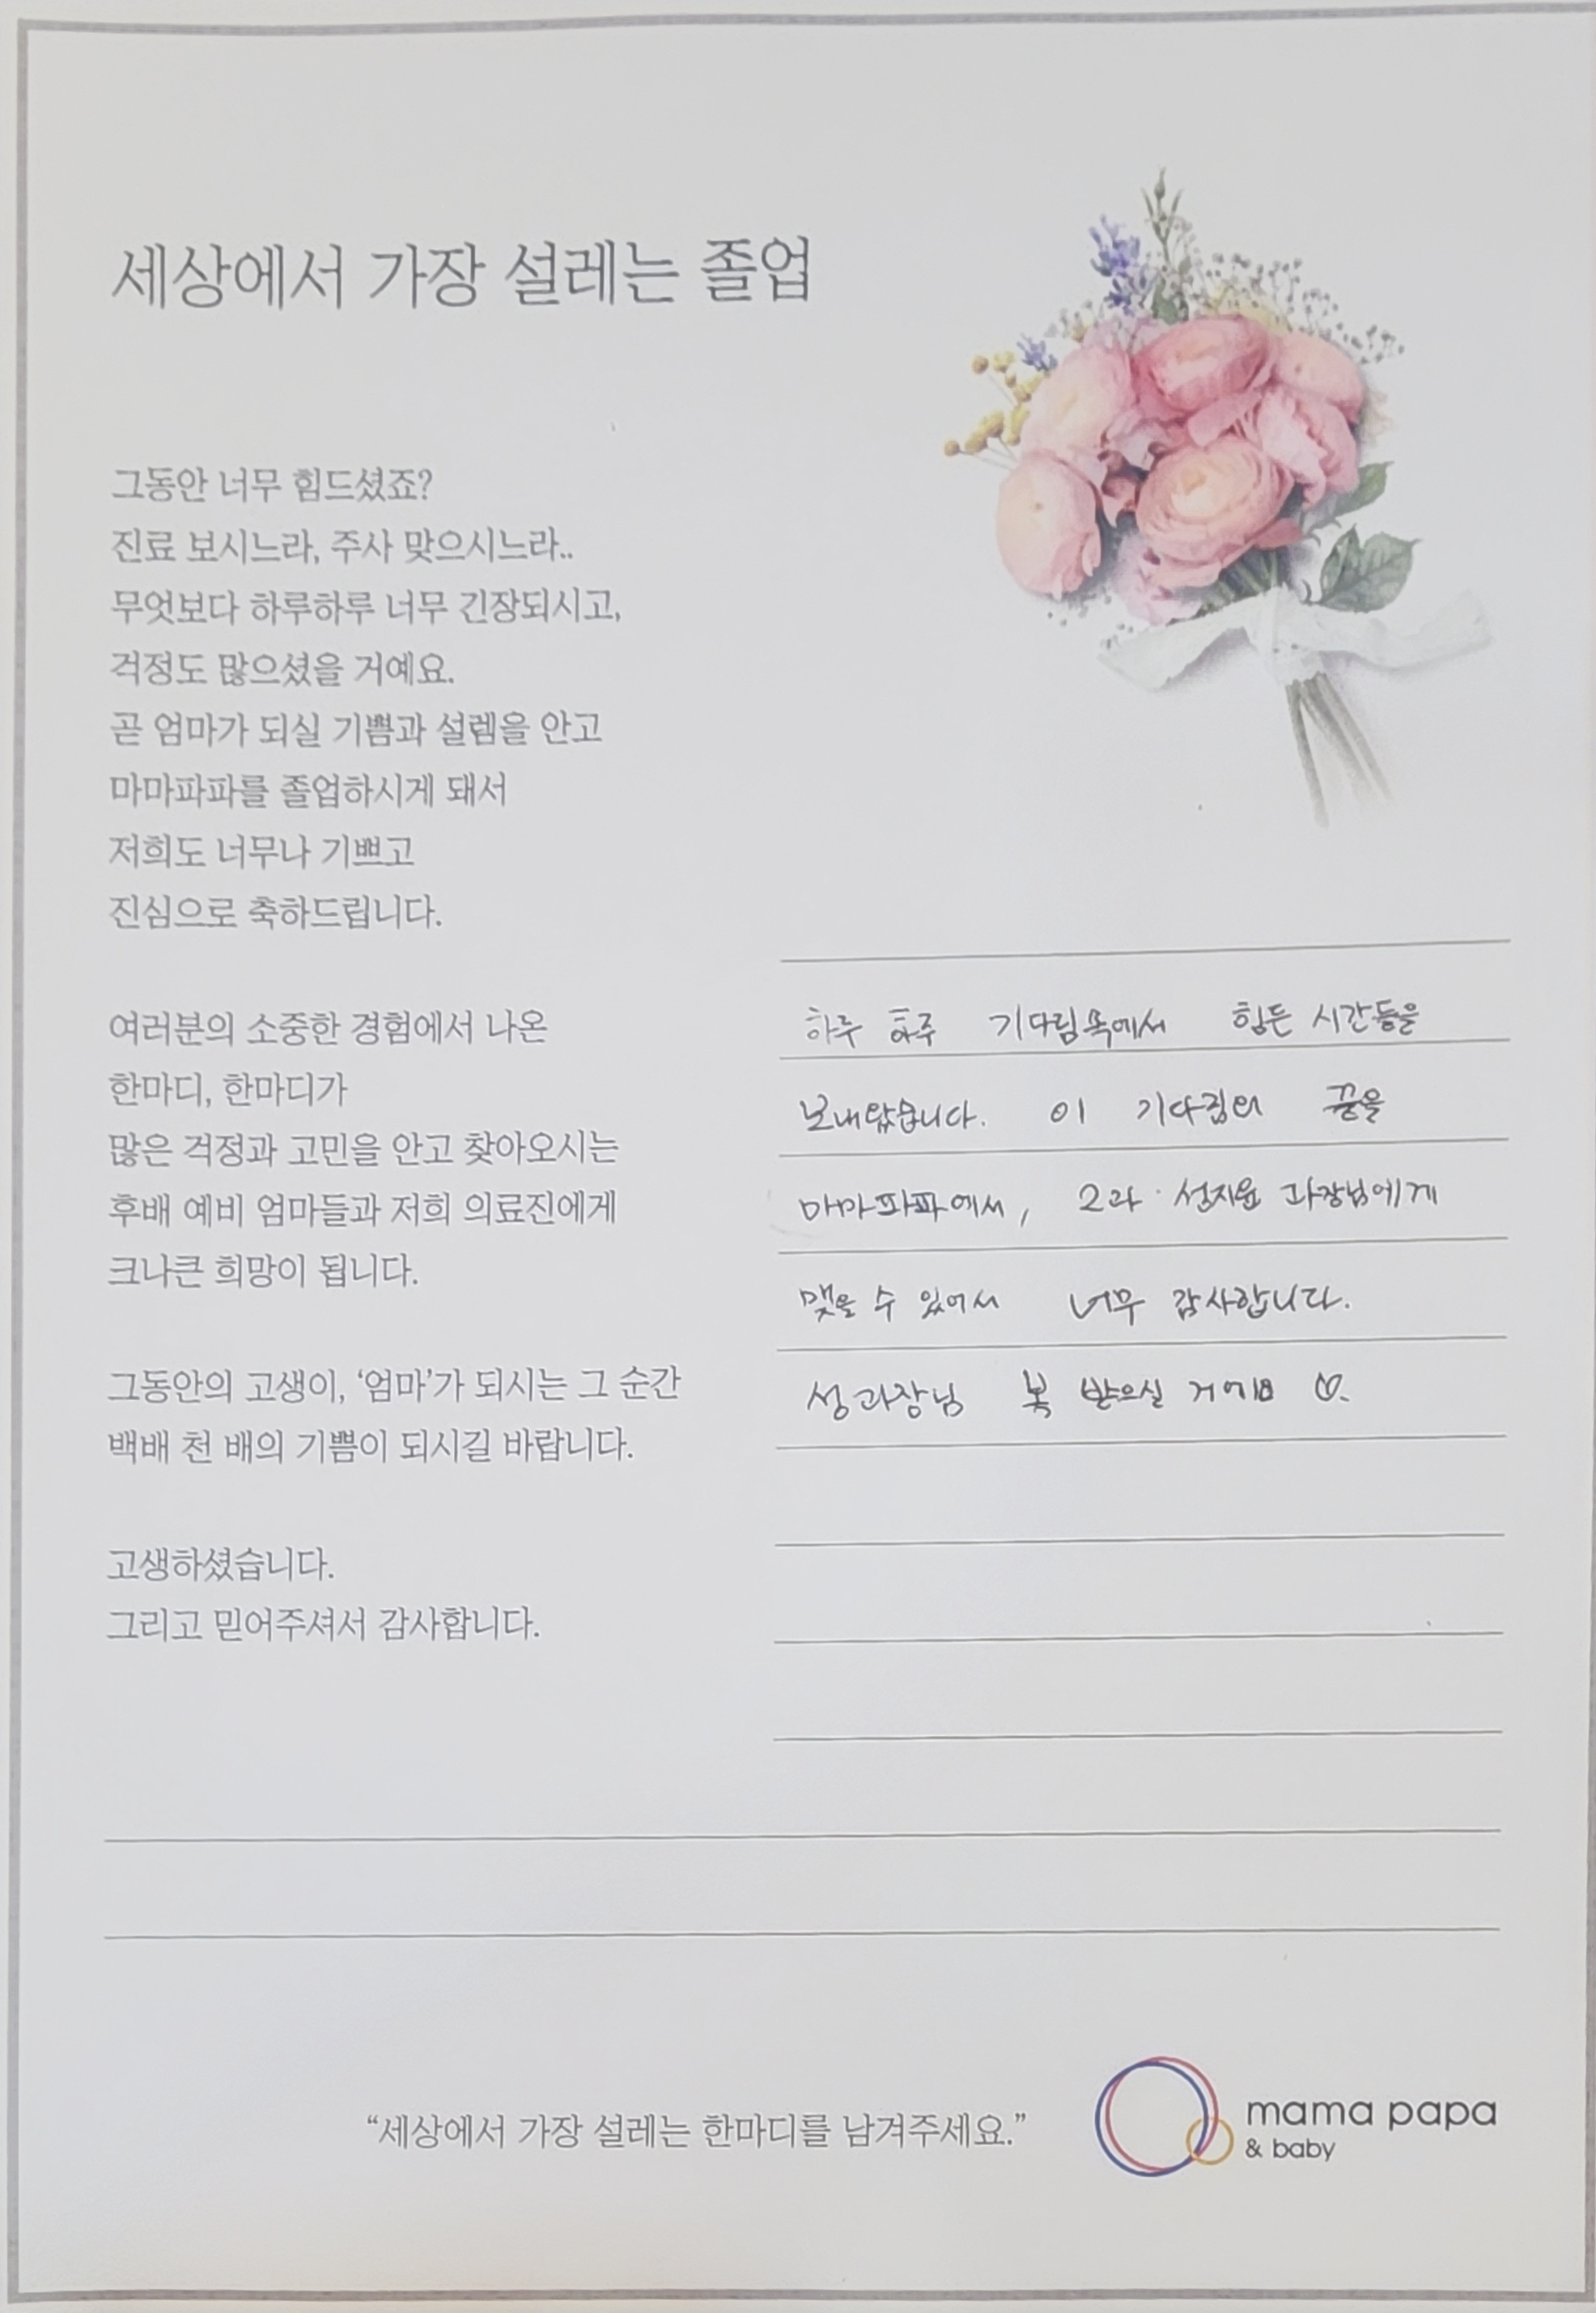 세상에서 가장 설레는 졸업
그동안 너무 힘드셨죠?
진료 보시느라, 주사 맞으시느라..
무엇보다 하루하루 너무 긴장되시고,
걱정도 많으셨을 거예요.
곧 엄마가 되실 기쁨과 설렘을 안고
마마파파를 졸업하시게 돼서
저희도 너무나 기쁘고
진심으로 축하드립니다.
여러분의 소중한 경험에서 나온
한마디, 한마디가
많은 걱정과 고민을 안고 찾아오시는
후배 예비 엄마들과 저희 의료진에게
크나큰 희망이 됩니다.
그동안의 고생이, ‘엄마’가 되시는 그 순간
백배 천 배의 기쁨이 되시길 바랍니다.
고생하셨습니다.
그리고 믿어주셔서 감사합니다.
하루 하루 기다림속에서 힘든 시간들을
보내왔습니다. 이 기다림의 끝을
마마파파에서, 2과 성지윤 과장님에게
맺을 수 있어서 너무 감사합니다.
성과장님 복 받으실 거에요 ♡.
“세상에서 가장 설레는 한마디를 남겨주세요.”
mama papa
& baby